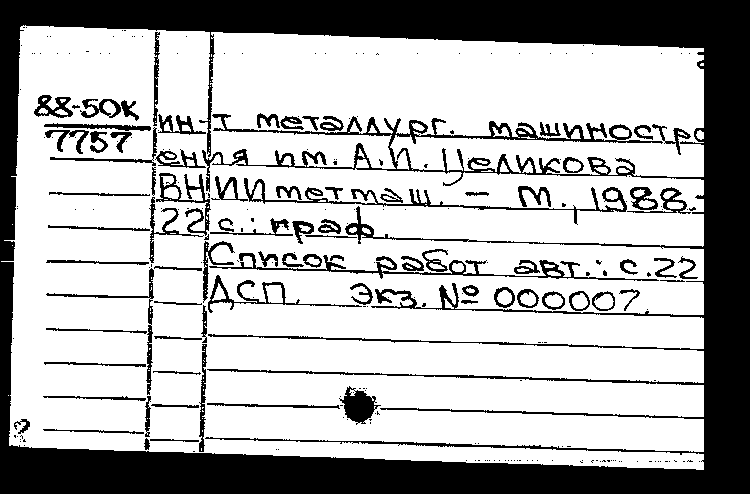 88-50к
7757
ин-т металлург. машиностро
ения им. А.И. Целикова
ВНИИметмаш. — М., 1988.-
22 с.: граф.
Список работ авт.: с.22
ДСП. Экз. № 000007.
2